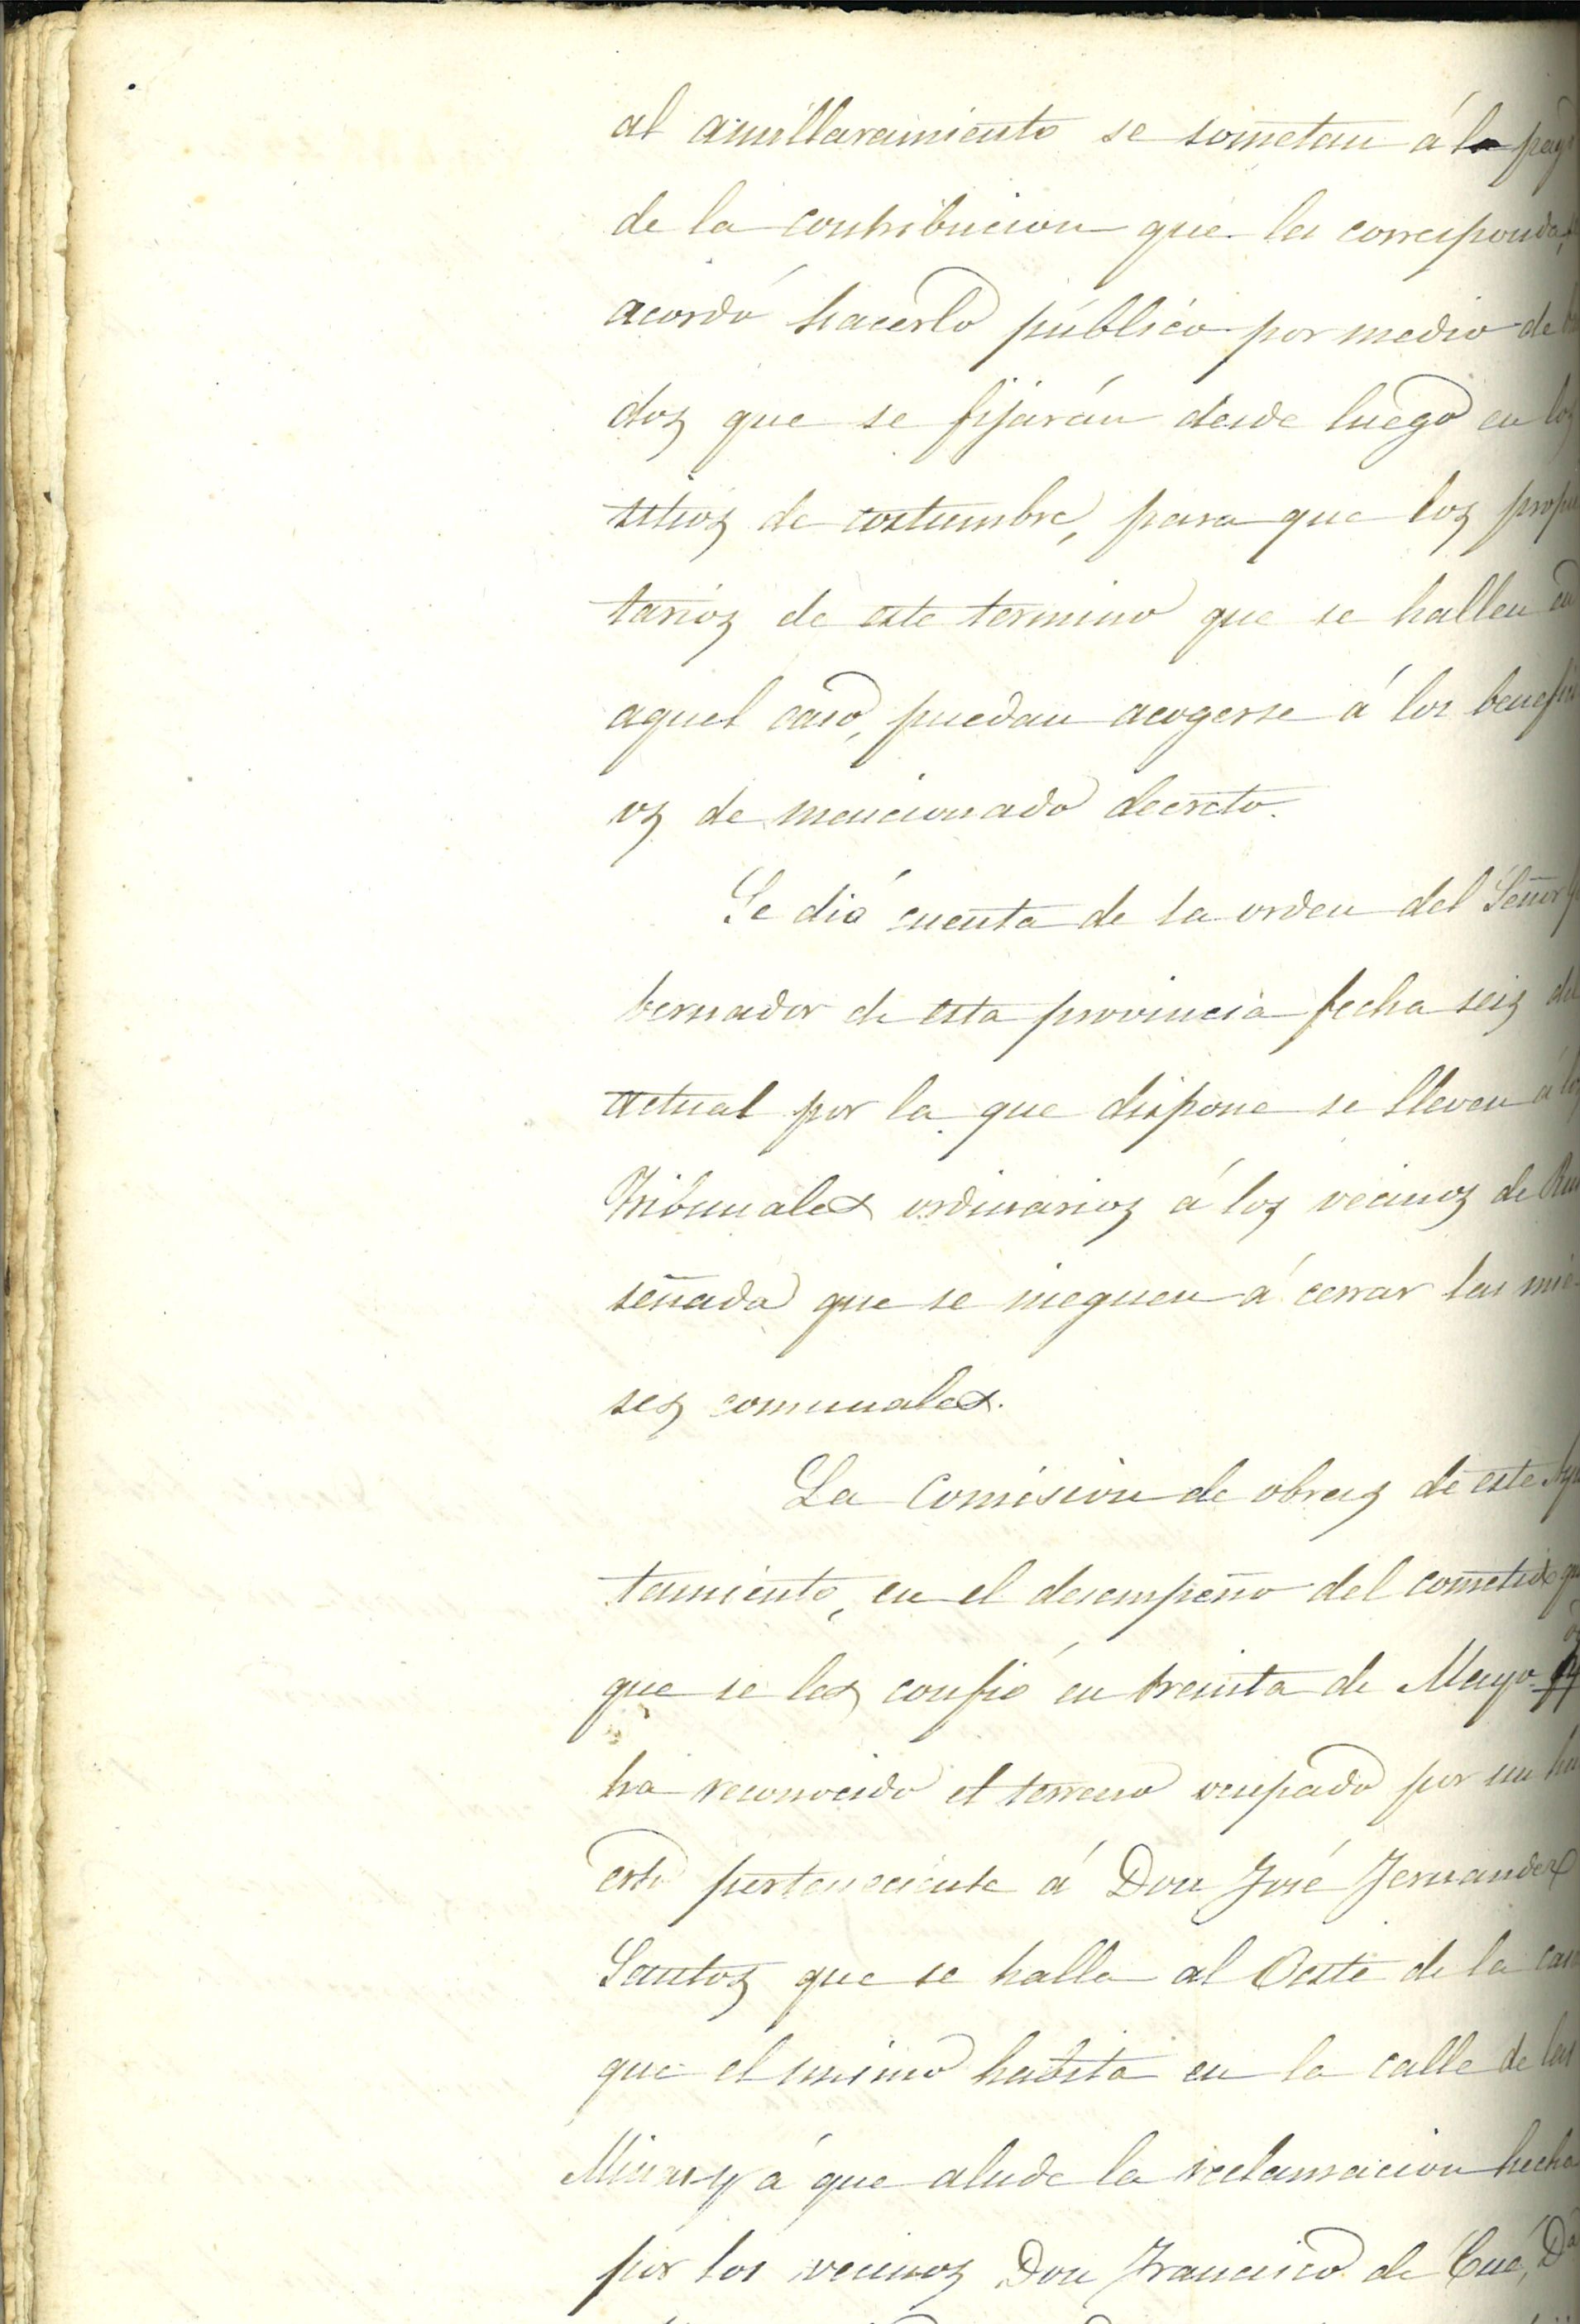 al amillaramiento se sometan á la pago
de la contribucion que les corresponda,
acordó hacerlo público por medio de
dos que se fijarán desde luego en los
sitios de costumbre, para que los propie
tarios de este termino que se hallen en
aquel caso, puedan acogerse á los benefici
os de mencionado decreto.
Se dió cuenta de la orden del Señor Go
bernador de esta provincia fecha seis del
actual por la que dispone se lleven á los
Tribunales ordinarios á los vecinos de Rui
señada que se nieguen á cerrar las mie-
ses comunales.
La Comision de obras de este Ayun
tamiento, en el desempeño del cometido que
que se les confió en treinta de Mayo
ha reconocido el terreno ocupado por un hu
erto perteneciente á Don José Fernandez
Santos que se halla al Oeste de la casa
que el mismo habita en la calle de las
Minas y á que alude la reclamacion hecha
por los vecinos Don Francisco de Cué, Do